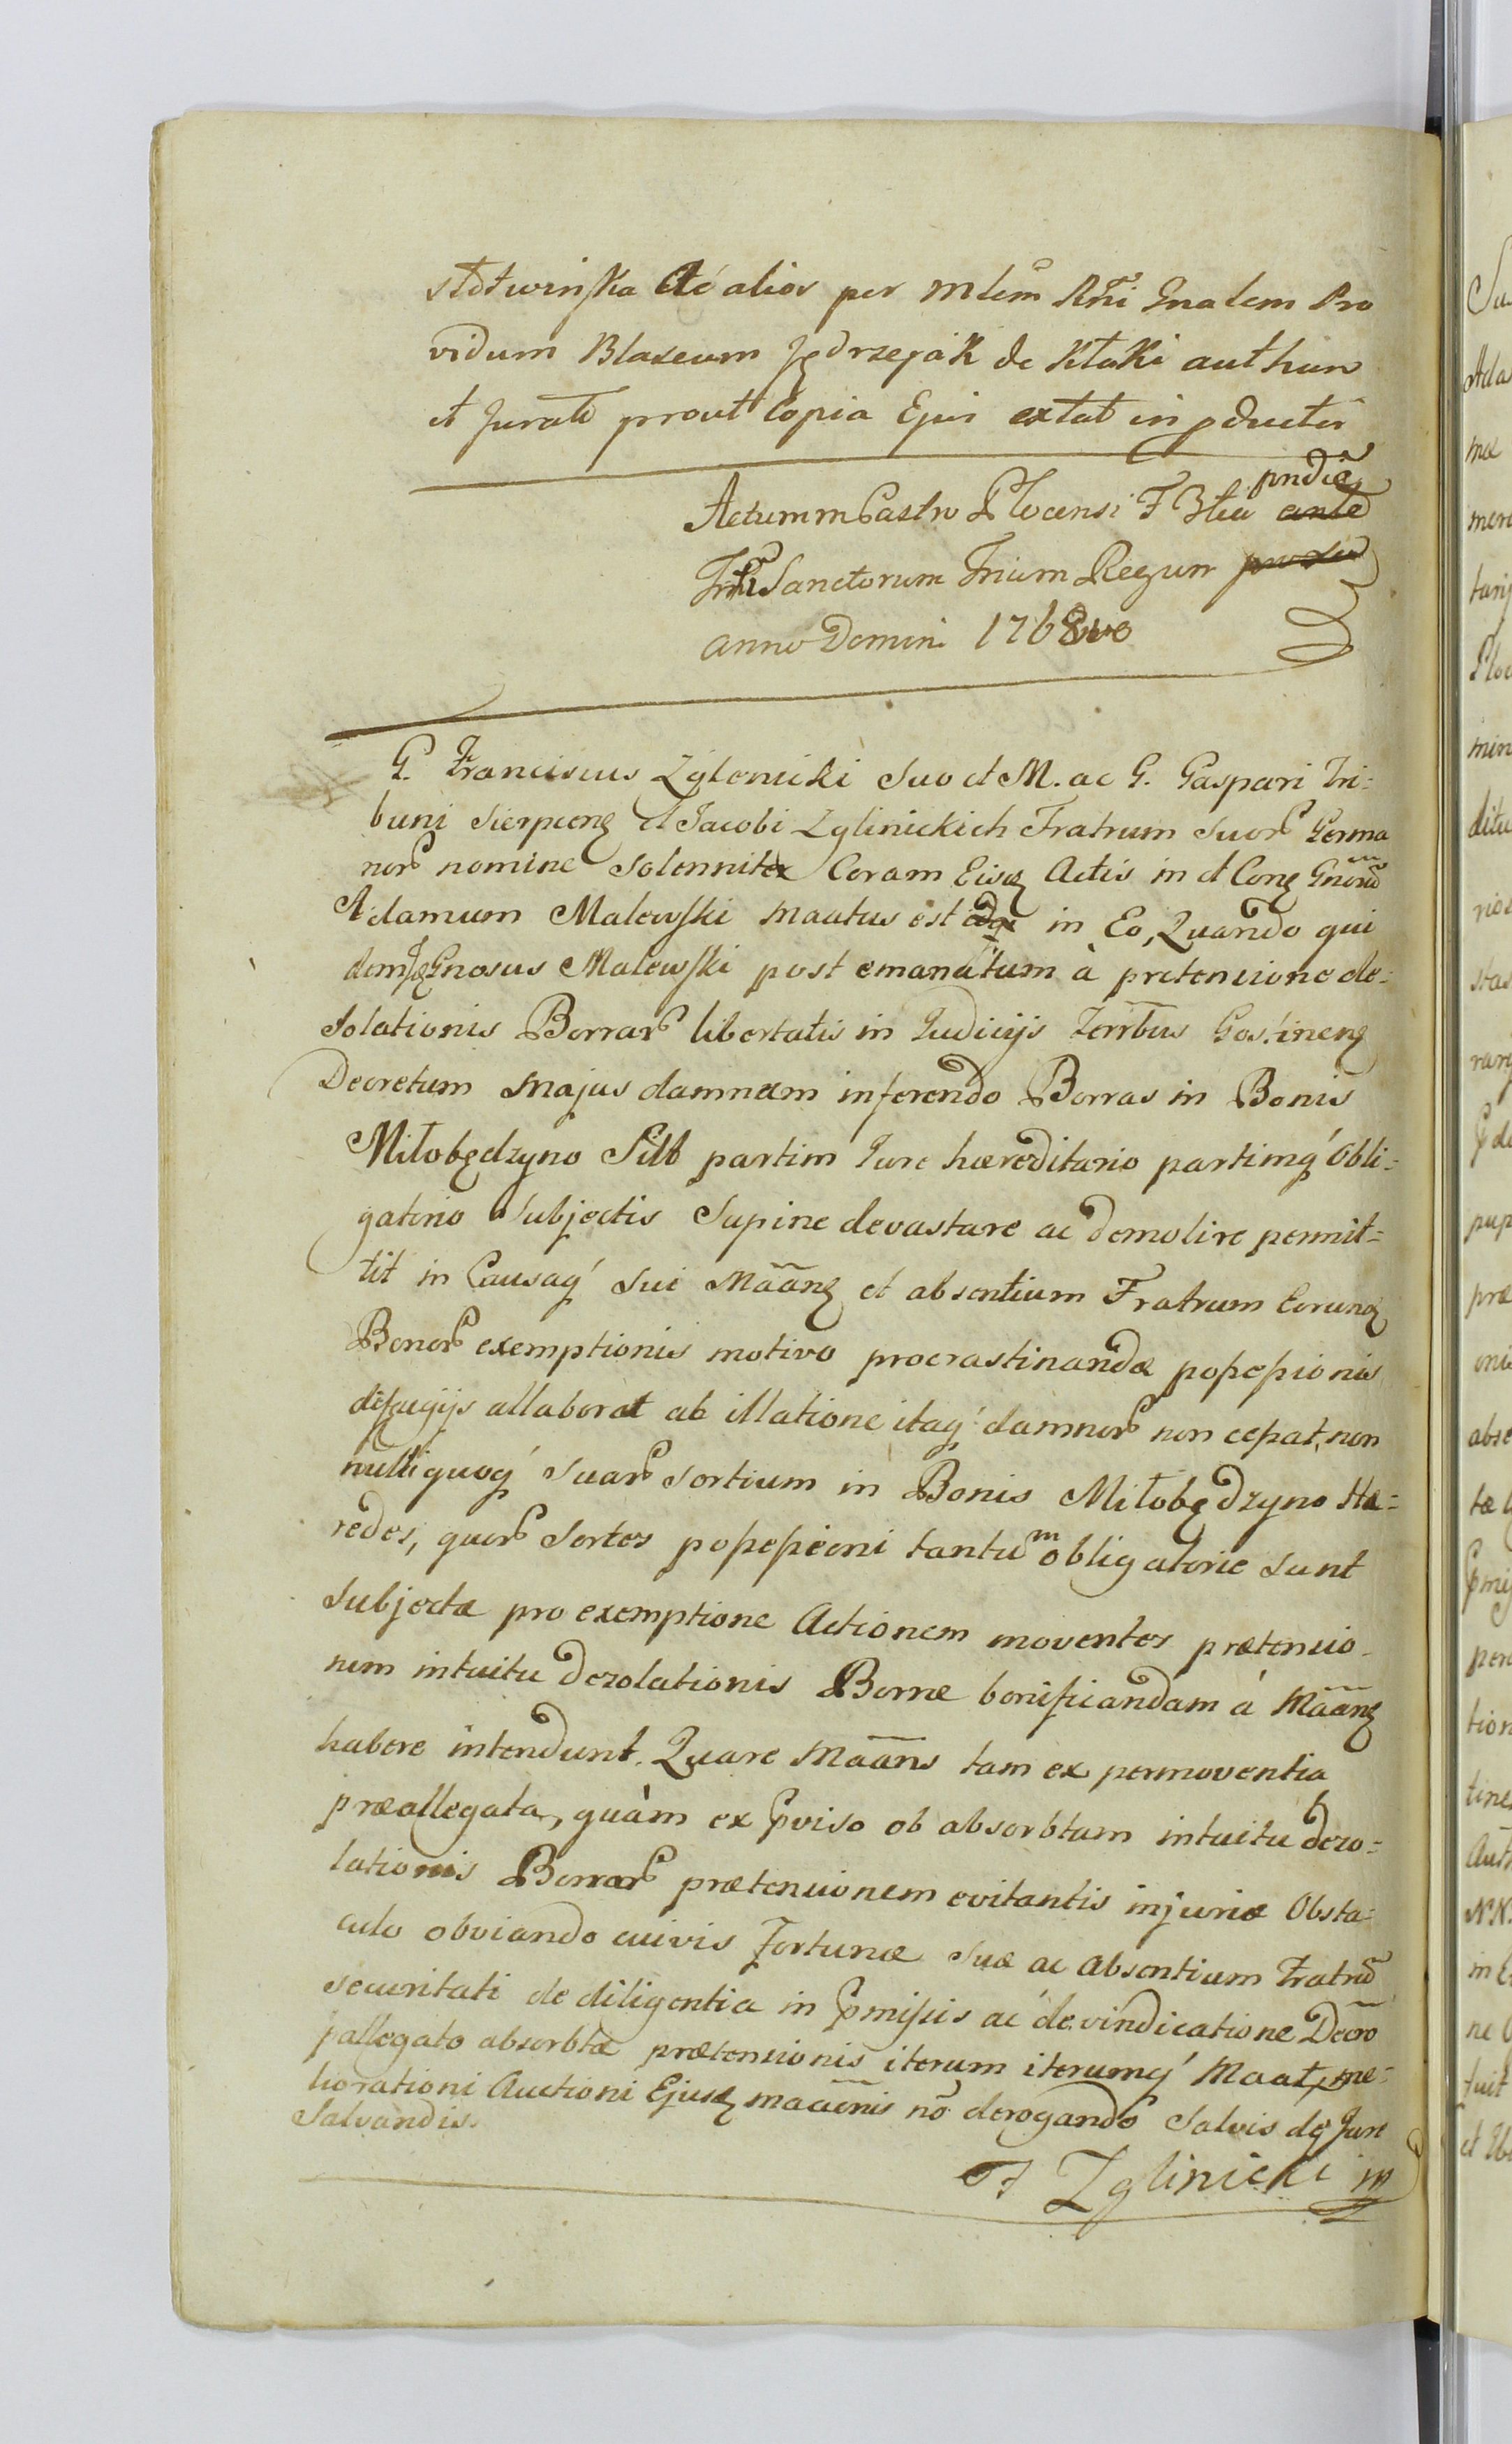 słotwinska Ac alios per Mlem Rni Gnalem Pro
vidum Blaseum Jędrzejak de Kłaki authen
et Jurate prout Copia Ejus extat in pductis
Actum in Castro Plocensi F 3tia pndie ante
Sanctorum Trium Regum
anno Domini 1768vo
G. Franciscus Zglenicki Suo et M. ac G. Gaspari Tri=
buni Sierpceng et Jacobi Zglinickich Fratrum Suor Germa
nor nomine Solenniter Coram Eisq Actis in et Cong Gnorũ
Adamum Malewski maatus est idq in Eo, Quando qui
demq Gnosus Malewski post emanatum à pretensione de=
solationis Borrar libertatis in Judicijs Terrtbus Gostineng
Decretum majus damnum inferendo Borras in Bonis
Miłobędzyno Sibb partim Jure hæreditario partimq́ Obli=
gatorio Subjectis Supine devastare ac demolire permit=
tit in Causaq́ Sui Mããnq et absentium Fratrum Eorunq
Bonor exemptionis motivo procrastinandæ possessionis
diffugijs allaborat ab illatione itaq́ damnor non cessat, non
nulli quoq́ Suar Sortium in Bonis Miłobędzyno Hæ=
redes, quor Sortes possessioni tantum obligatorie sunt
Subjectæ pro exemptione Actionem moventes prætensio
nem intuitu dezolationis Borræ bonificandam á Mããnq
habere intendunt. Quare Mããns tam ex permoventia
præallegata, quàm ex pviso ob absorbtam intuitu dezo=
lationis Borrar prætensionem evitantis injuriæ Obsta=
culo obviando cuivis Fortunæ Suæ ac absentium Fratrũ
securitati de diligentia in pmissis ac de vindicatione Decro
pallegato absorbtæ prætensionis iterum iterumq́ Maat, me=
liorationi Auctioni Ejusq maaõnis nõ derogando Salvis dq Jure
Salvandis.
F Zglinicki mp